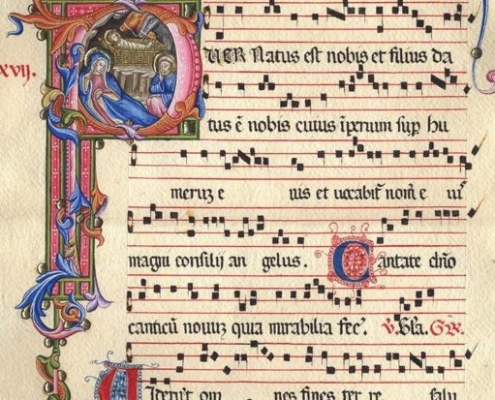 xvij.
PUER Natus est nobis et filius da
tus ē nobis cuius īꝑium suꝑ hu
meruz e ius et uocabit̉ nomē e iu᷒
magni consilij an gelus. Cantate dño
canticū nouuz quia mirabilia fec̉. V. Gla. Gr̄.
Uiderūt om nes fines ter re salu